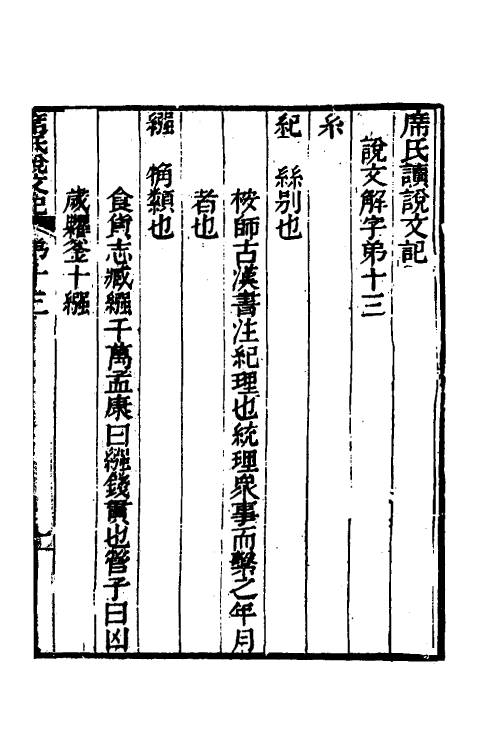 席氏讀說文記
說文解字弟十三
糸
紀　絲別也
桉師古漢書注紀理也統理衆事而繫之年月
者也
繦　觕纇也
食貨志臧繦千萬孟康曰繦錢貫也管子曰凶
歲糴釜十繦
席氏說文記　弟十三